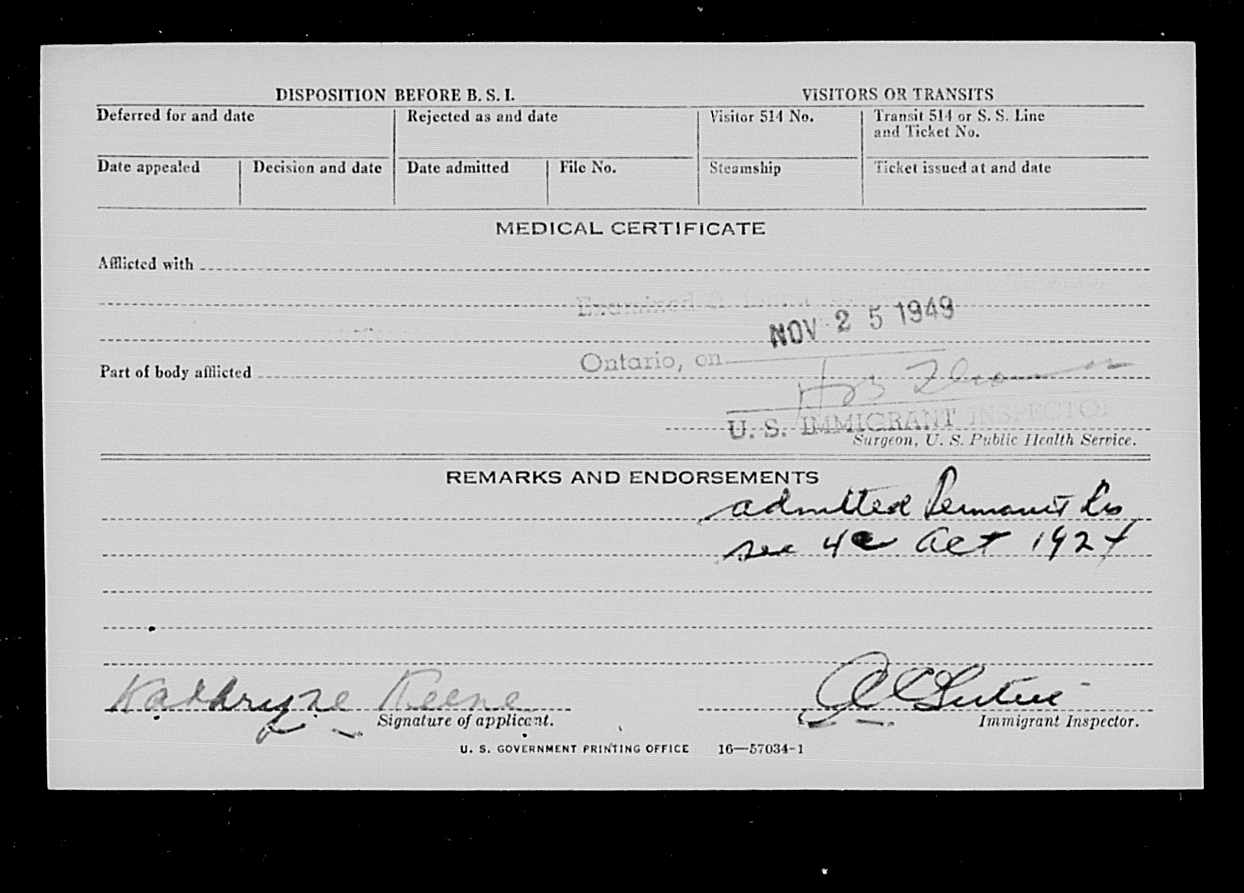 DISPOSITION BEFORE B. S. I.
VISITORS OR TRANSITS
Deferred for and date
Rejected as and date
Visitor 514 No.
Transit 514 or S. S. Line
and Ticket No.
Date appealed
Decision and date
Date admitted
File No.
Steamship
Ticket issued at and date
MEDICAL CERTIFICATE
Afflicted with
Examined
NOV 25 1949
Ontario, on
Part of body afflicted
U. S. IMMIGRANT INSPECTOR
Surgeon, U. S. Public Health Service.
REMARKS AND ENDORSEMENTS
admitted
sec 4c Act 1924
Kathryne Keene
Signature of applicant.
Immigrant Inspector.
U. S. GOVERNMENT PRINTING OFFICE 16—57034-1